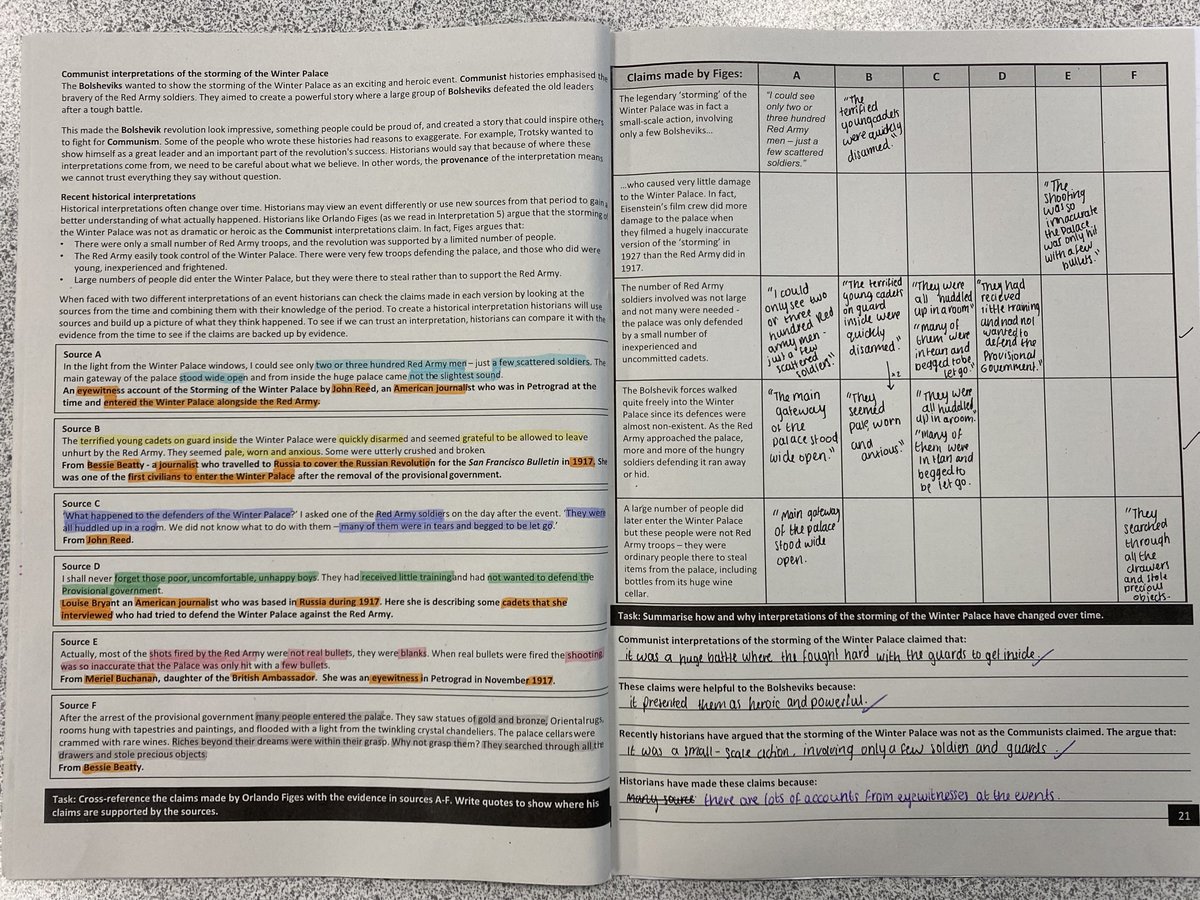 Communist interpretations of the storming of the Winter Palace
The Bolsheviks wanted to show the storming of the Winter Palace as an exciting and heroic event. Communist histories emphasised the
bravery of the Red Army soldiers. They aimed to create a powerful story where a large group of Bolsheviks defeated the old leaders
after a tough battle.
This made the Bolshevik revolution look impressive, something people could be proud of, and created a story that could inspire others
to fight for Communism. Some of the people who wrote these histories had reasons to exaggerate. For example, Trotsky wanted to
show himself as a great leader and an important part of the revolution's success. Historians would say that because of where these
interpretations come from, we need to be careful about what we believe. In other words, the provenance of the interpretation means
we cannot trust everything they say without question.
Recent historical interpretations
Historical interpretations often change over time. Historians may view an event differently or use new sources from that period to gain a
better understanding of what actually happened. Historians like Orlando Figes (as we read in Interpretation 5) argue that the storming of
the Winter Palace was not as dramatic or heroic as the Communist interpretations claim. In fact, Figes argues that:
• There were only a small number of Red Army troops, and the revolution was supported by a limited number of people.
• The Red Army easily took control of the Winter Palace. There were very few troops defending the palace, and those who did were
young, inexperienced and frightened.
• Large numbers of people did enter the Winter Palace, but they were there to steal rather than to support the Red Army.
When faced with two different interpretations of an event historians can check the claims made in each version by looking at the
sources from the time and combining them with their knowledge of the period. To create a historical interpretation historians will use
sources and build up a picture of what they think happened. To see if we can trust an interpretation, historians can compare it with the
evidence from the time to see if the claims are backed up by evidence.
Source A
In the light from the Winter Palace windows, I could see only two or three hundred Red Army men – just a few scattered soldiers. The
main gateway of the palace stood wide open and from inside the huge palace came not the slightest sound.
An eyewitness account of the Storming of the Winter Palace by John Reed, an American journalist who was in Petrograd at the
time and entered the Winter Palace alongside the Red Army.
Source B
The terrified young cadets on guard inside the Winter Palace were quickly disarmed and seemed grateful to be allowed to leave
unhurt by the Red Army. They seemed pale, worn and anxious. Some were utterly crushed and broken.
From Bessie Beatty - a journalist who travelled to Russia to cover the Russian Revolution for the San Francisco Bulletin in 1917. She
was one of the first civilians to enter the Winter Palace after the removal of the provisional government.
Source C
'What happened to the defenders of the Winter Palace?' I asked one of the Red Army soldiers on the day after the event. 'They were
all huddled up in a room. We did not know what to do with them – many of them were in tears and begged to be let go.'
From John Reed.
Source D
I shall never forget those poor, uncomfortable, unhappy boys. They had received little training and had not wanted to defend the
Provisional government.
Louise Bryant an American journalist who was based in Russia during 1917. Here she is describing some cadets that she
interviewed who had tried to defend the Winter Palace against the Red Army.
Source E
Actually, most of the shots fired by the Red Army were not real bullets, they were blanks. When real bullets were fired the shooting
was so inaccurate that the Palace was only hit with a few bullets.
From Meriel Buchanan, daughter of the British Ambassador. She was an eyewitness in Petrograd in November 1917.
Source F
After the arrest of the provisional government many people entered the palace. They saw statues of gold and bronze, Oriental rugs,
rooms hung with tapestries and paintings, and flooded with a light from the twinkling crystal chandeliers. The palace cellars were
crammed with rare wines. Riches beyond their dreams were within their grasp. Why not grasp them? They searched through all the
drawers and stole precious objects
From Bessie Beatty.
Task: Cross-reference the claims made by Orlando Figes with the evidence in sources A-F. Write quotes to show where his
claims are supported by the sources.
Claims made by Figes:
A
B
C
D
E
F
The legendary 'storming' of the
Winter Palace was in fact a
small-scale action, involving
only a few Bolsheviks...
"I could see
only two or
three hundred
Red Army
men – just a
few scattered
soldiers."
"The
terrified
young cadets
were quickly
disarmed."
...who caused very little damage
to the Winter Palace. In fact,
Eisenstein's film crew did more
damage to the palace when
they filmed a hugely inaccurate
version of the 'storming' in
1927 than the Red Army did in
1917.
"The
shooting
was so
innacurate
the Palace
was only hit
with a few
bullets."
The number of Red Army
soldiers involved was not large
and not many were needed -
the palace was only defended
by a small number of
inexperienced and
uncommitted cadets.
"I could
only see two
or three
hundred Red
army men -
just a few
scattered
soldiers."
"The terrified
young cadets
on guard
inside were
quickly
disarmed."
x2
"They were
all huddled
up in a room"
"many of
them were
in tear and
begged to be
let go."
"They had
recieved
little training
and had not
wanted to
defend the
Provisional
Government."
The Bolshevik forces walked
quite freely into the Winter
Palace since its defences were
almost non-existent. As the
Red Army approached the palace,
more and more of the hungry
soldiers defending it ran away
or hid.
"The main
gateway
of the
palace stood
wide open."
"They
seemed
pale, worn
and
anxious."
"They were
all huddled
up in aroom."
"many of
them were
in tear and
begged to
be let go.
A large number of people did
later enter the Winter Palace
but these people were not Red
Army troops – they were
ordinary people there to steal
items from the palace, including
bottles from its huge wine
cellar.
"Main gateway
of the palace
stood wide
open.
"They
searched
through
all the
drawers
and stole
precious
objects.
Task: Summarise how and why interpretations of the storming of the Winter Palace have changed over time.
Communist interpretations of the storming of the Winter Palace claimed that:
it was a huge battle where the fought hard with the guards to get inside.
These claims were helpful to the Bolsheviks because:
it presented them as heroic and powerful.
Recently historians have argued that the storming of the Winter Palace was not as the Communists claimed. The argue that:
it was a small-scale action, involving only a few soldiers and guards.
Historians have made these claims because:
Many source there are lots of accounts from eyewitnesses at the events.
21